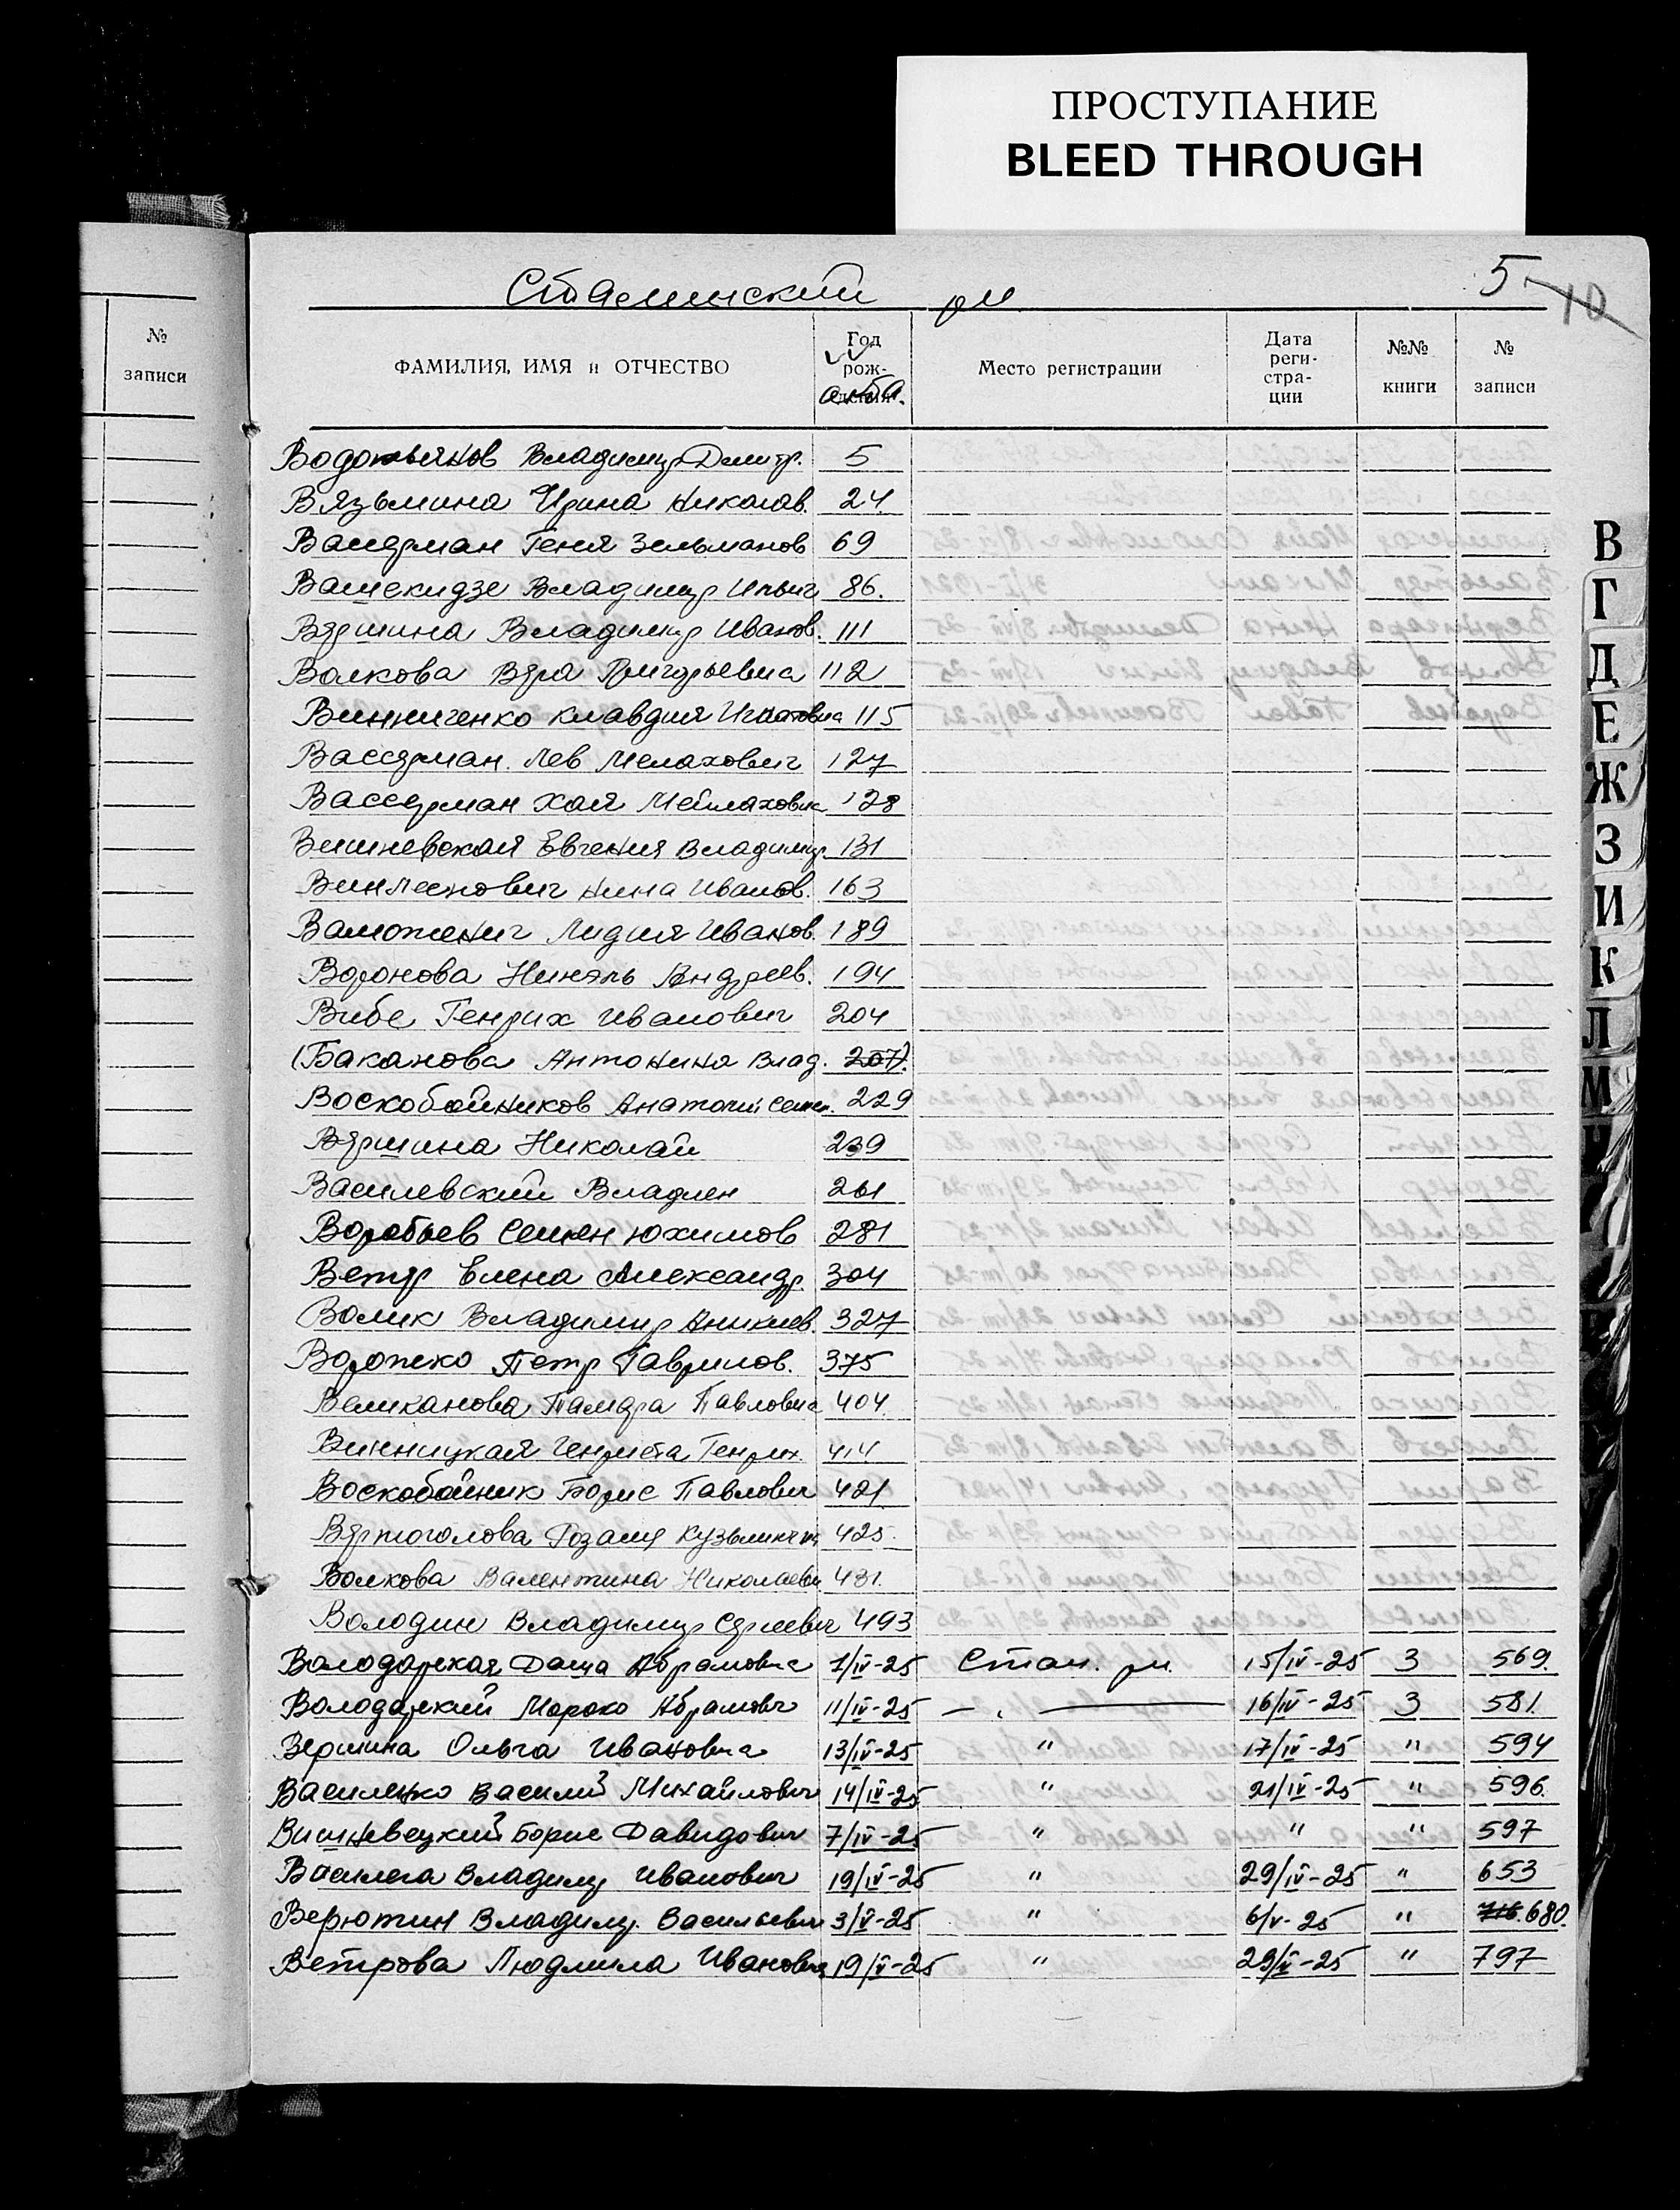 ПРОСТУПАНИЕ
BLEED THROUGH
Сталинский рн
5 10
№ записи
ФАМИЛИЯ, ИМЯ и ОТЧЕСТВО Год рождения №№ акта. Место регистрации Дата регистрации №№ книги № записи
Водопьянов Владимир Дмитр. 5
Вязьмина Ирина Николав. 24.
Вандрман Геня Зельманов 69
Вашекидзе Владимир Ильич 86.
Вяршина Владимир Иванов. 111
Волкова Вера Григорьевна 112
Винниченко Клавдия Игнатовна 115
Вассерман. Лев Мелахович 127
Вассерман Хая Мейлаховна 128
Вишневская Евгения Владимир. 131
Нина Иванов. 163
Лидия Иванов. 189
Воронова Нинэль Андреев. 194
Вибе Генрих Иванович 204
(Баканова Антонина Влад. 207).
Воскобойников Анатолий Семен. 229
Вяршина Николай 239
Василевский Владлен 261
Воробьев Семен Юхимов 281
Ветр Елена Александр. 304
Волик Владимир Аникиев. 327
Воропско Петр Гаврилов. 375
Великанова Тамара Павловна 404.
Винницкая Генриета Генрих. 414
Воскобойник Борис Павлович 421
Вертоголова Розалия 425.
Волкова Валентина Николаевн 431.
Володин Владимир Сергеевич 493
Володарская Даша Абрамовна 1/IV-25 Стан. рн. 15/IV-25 3 569.
Володарский Марко Абрамович 11/IV-25 — „ — 16/IV-25 3 581.
Вершина Ольга Ивановна 13/IV-25 " 17/IV-25 " 594
Василенко Василий Михайлович 14/IV-25 " 21/IV-25 " 596.
Вишневецкий Борис Давидович 7/IV-25 " " " 597
Василега Владимир Иванович 19/IV-25 " 29/IV-25 " 653
Верютин Владимир. Васильевич 3/V-25 " 6/V-25 " 716. 680.
Ветрова Людмила Ивановна 19/V-25 " 29/V-25 " 797
В
Г
Д
Е
Ж
З
И
К
Л
М